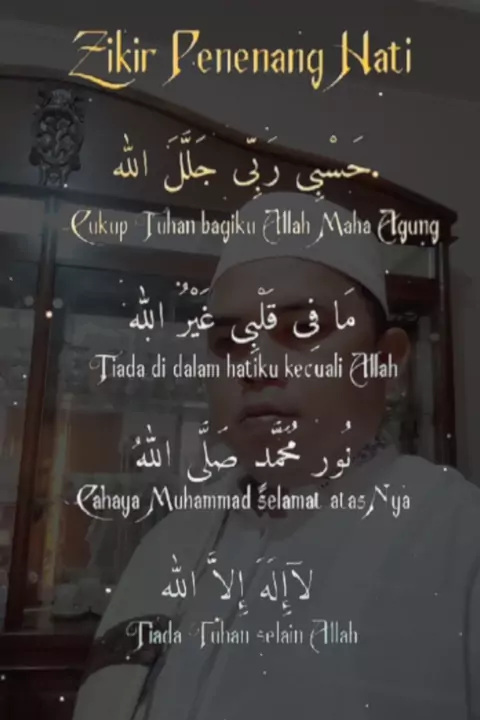 Zikir Penenang Hati
حَسْبِي رَبِّي جَلَّلَ الله
Cukup Tuhan bagiku Allah Maha Agung
مَا فِي قَلْبِي غَيْرُ الله
Tiada di dalam hatiku kecuali Allah
نُور مُحَمَّد صَلَّى اللهُ
Cahaya Muhammad Selamat atas Nya
لآإِلَهَ إِلاَّ الله
Tiada Tuhan selain Allah